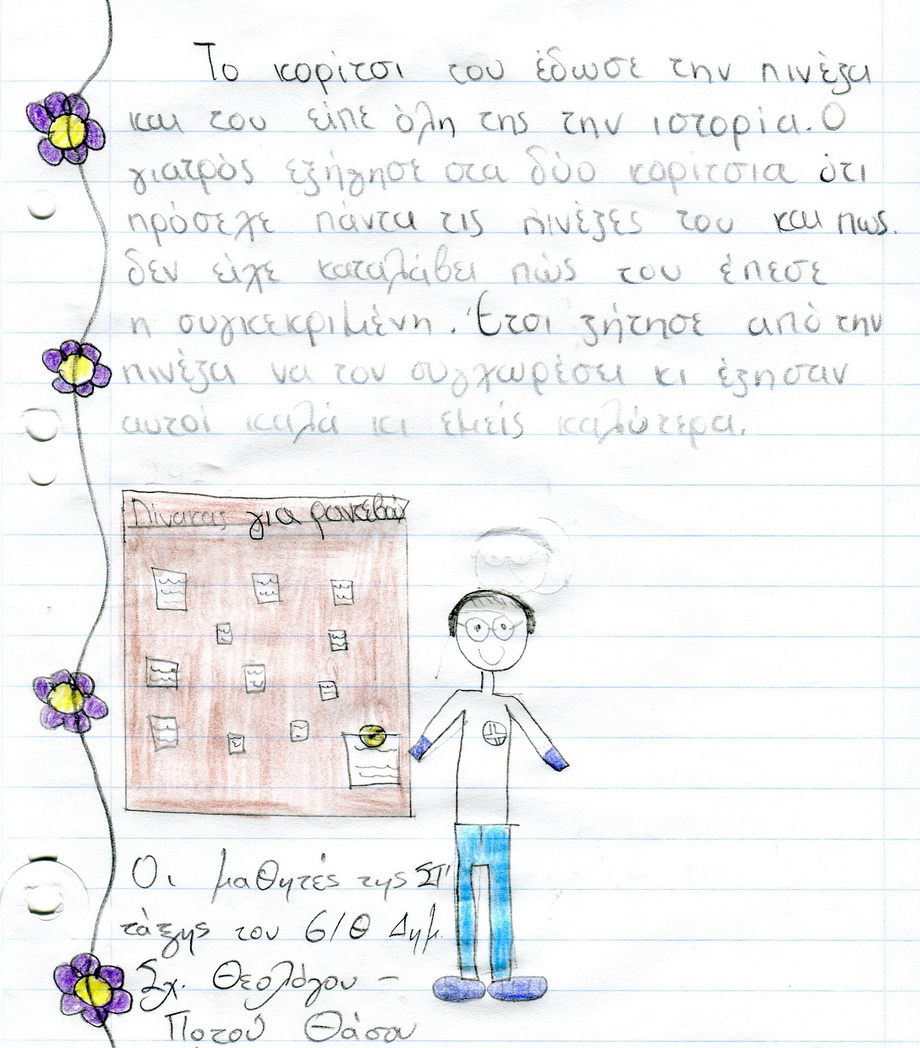 Το κορίτσι του έδωσε την πινέζα
και του είπε όλη της την ιστορία. Ο
γιατρός εξήγησε στα δύο κορίτσια ότι
πρόσεχε πάντα τις πινέζες του και πως
δεν είχε καταλάβει πώς του έπεσε
η συγκεκριμένη. Έτσι ζήτησε από την
πινέζα να τον συγχωρέσει κι έζησαν
αυτοί καλά κι εμείς καλύτερα.
Πίνακας για ραντεβού
Οι μαθητές της ΣΤ'
τάξης του 6/Θ Δημ.
Σχ. Θεολόγου -
Ποτού Θάσου